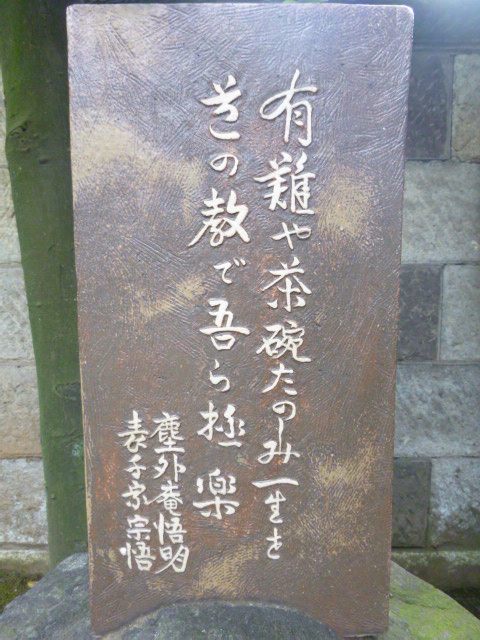 有難や茶碗たのしみ一生を
その教で吾ら極楽
塵外庵悟明
表千家宗悟